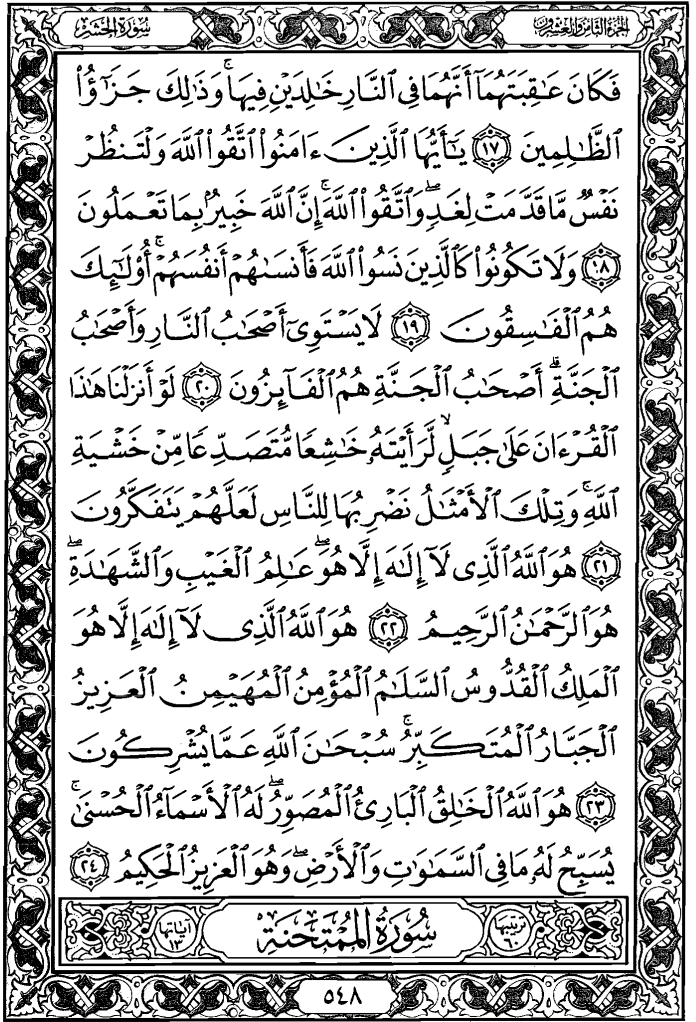 الجزء الثامن والعشرون
سورة الحشر
فَكَانَ عَٰقِبَتَهُمَآ أَنَّهُمَا فِي ٱلنَّارِ خَٰلِدَيْنِ فِيهَا ۚ وَذَٰلِكَ جَزَٰٓؤُا۟
ٱلظَّٰلِمِينَ ١٧ يَٰٓأَيُّهَا ٱلَّذِينَ ءَامَنُوا۟ ٱتَّقُوا۟ ٱللَّهَ وَلْتَنظُرْ
نَفْسٌ مَّا قَدَّمَتْ لِغَدٍ ۖ وَٱتَّقُوا۟ ٱللَّهَ ۚ إِنَّ ٱللَّهَ خَبِيرٌۢ بِمَا تَعْمَلُونَ
١٨ وَلَا تَكُونُوا۟ كَٱلَّذِينَ نَسُوا۟ ٱللَّهَ فَأَنسَىٰهُمْ أَنفُسَهُمْ ۚ أُو۟لَٰٓئِكَ
هُمُ ٱلْفَٰسِقُونَ ١٩ لَا يَسْتَوِىٓ أَصْحَٰبُ ٱلنَّارِ وَأَصْحَٰبُ
ٱلْجَنَّةِ ۚ أَصْحَٰبُ ٱلْجَنَّةِ هُمُ ٱلْفَآئِزُونَ ٢٠ لَوْ أَنزَلْنَا هَٰذَا
ٱلْقُرْءَانَ عَلَىٰ جَبَلٍ لَّرَأَيْتَهُۥ خَٰشِعًا مُّتَصَدِّعًا مِّنْ خَشْيَةِ
ٱللَّهِ ۚ وَتِلْكَ ٱلْأَمْثَٰلُ نَضْرِبُهَا لِلنَّاسِ لَعَلَّهُمْ يَتَفَكَّرُونَ
٢١ هُوَ ٱللَّهُ ٱلَّذِى لَآ إِلَٰهَ إِلَّا هُوَ ۖ عَٰلِمُ ٱلْغَيْبِ وَٱلشَّهَٰدَةِ ۖ
هُوَ ٱلرَّحْمَٰنُ ٱلرَّحِيمُ ٢٢ هُوَ ٱللَّهُ ٱلَّذِى لَآ إِلَٰهَ إِلَّا هُوَ
ٱلْمَلِكُ ٱلْقُدُّوسُ ٱلسَّلَٰمُ ٱلْمُؤْمِنُ ٱلْمُهَيْمِنُ ٱلْعَزِيزُ
ٱلْجَبَّارُ ٱلْمُتَكَبِّرُ ۚ سُبْحَٰنَ ٱللَّهِ عَمَّا يُشْرِكُونَ
٢٣ هُوَ ٱللَّهُ ٱلْخَٰلِقُ ٱلْبَارِئُ ٱلْمُصَوِّرُ ۖ لَهُ ٱلْأَسْمَآءُ ٱلْحُسْنَىٰ ۚ
يُسَبِّحُ لَهُۥ مَا فِي ٱلسَّمَٰوَٰتِ وَٱلْأَرْضِ ۖ وَهُوَ ٱلْعَزِيزُ ٱلْحَكِيمُ ٢٤
ترتيبها ٦٠
سورة الممتحنة
آياتها ١٣
٥٤٨